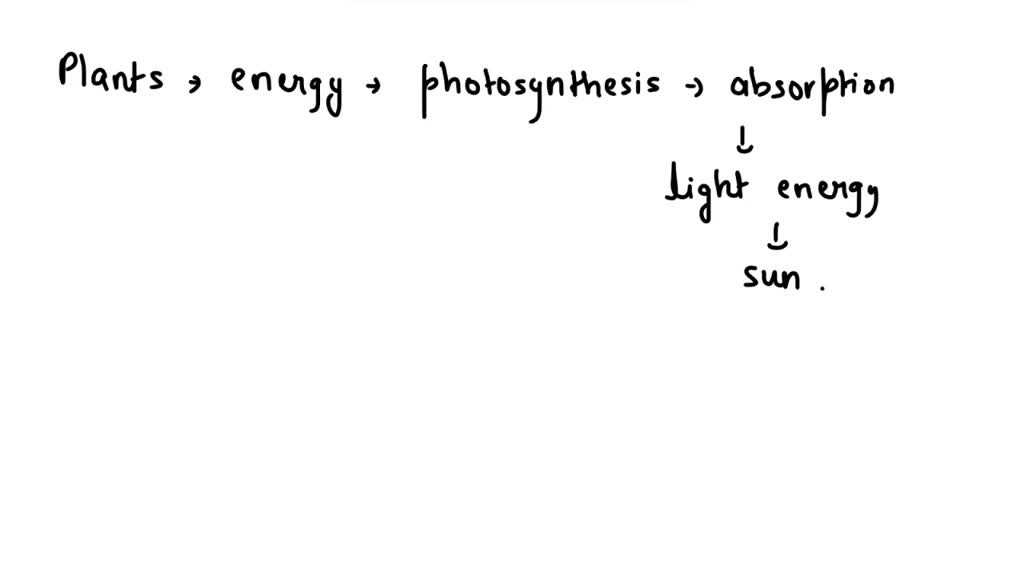 Plants → energy → photosynthesis → absorption
↓
light energy
↓
sun.